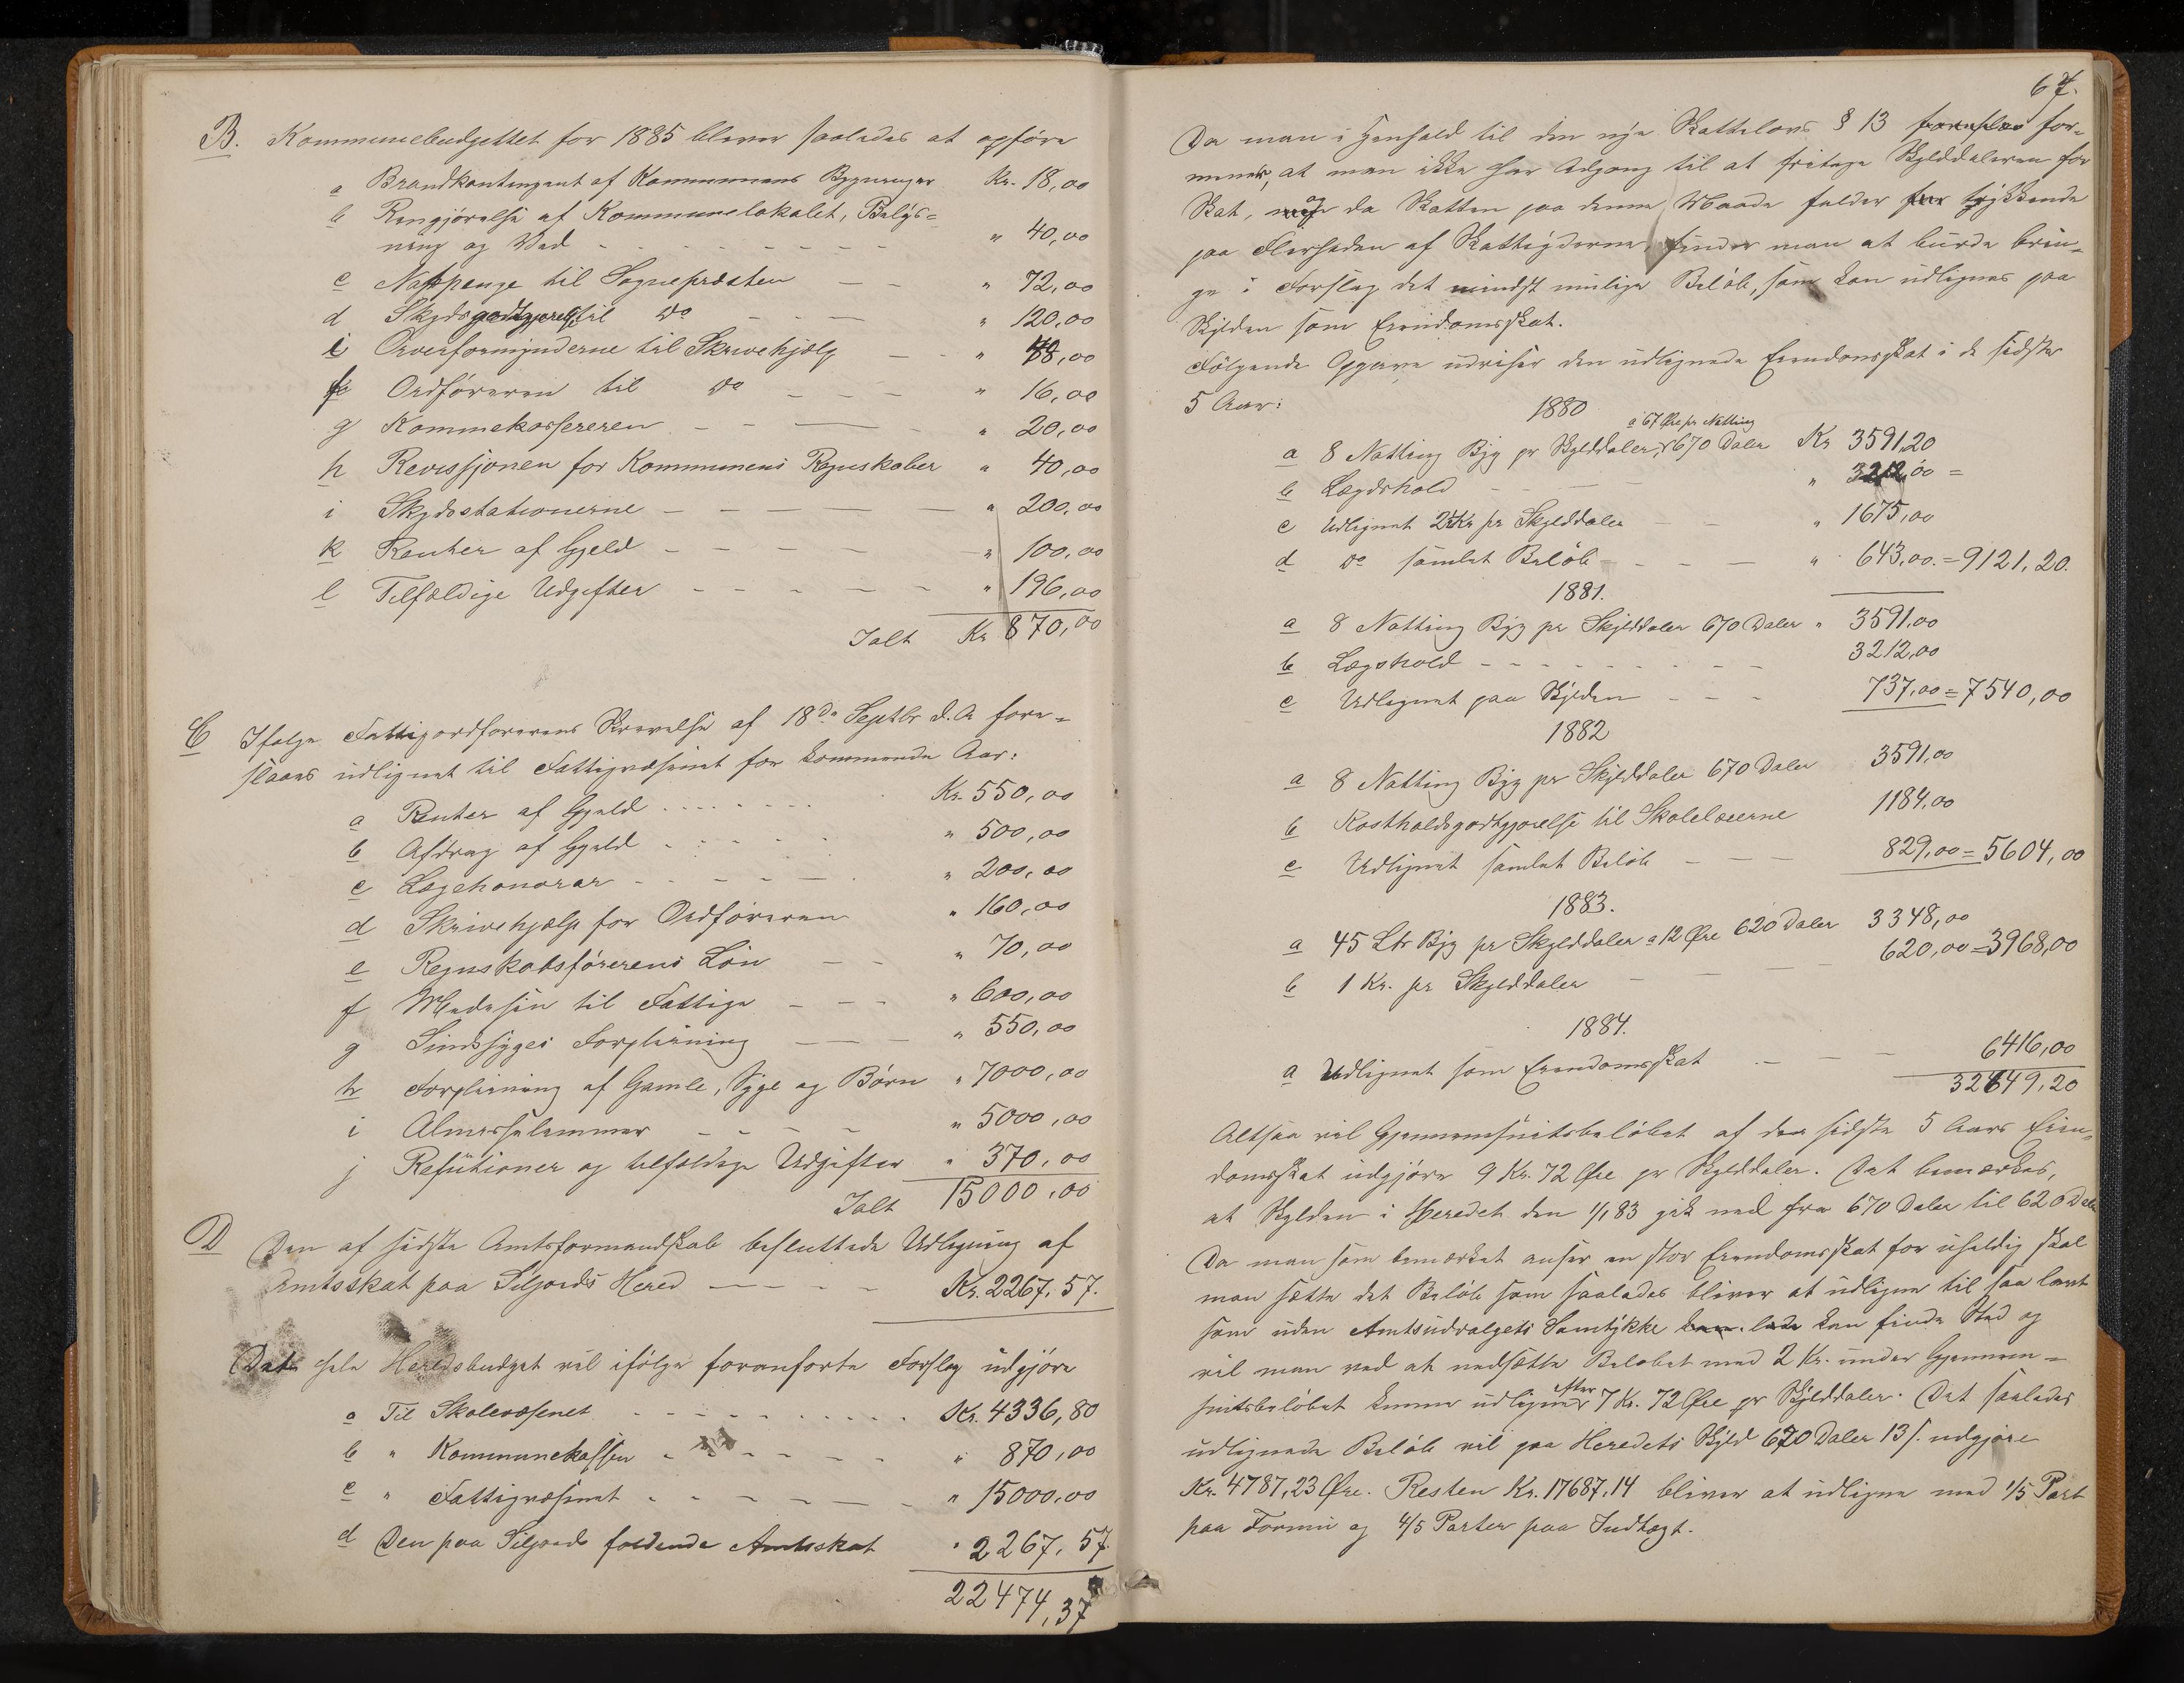 B. Kommunebudgettet for 1885 bliver saaledes at opføre
a Brandkontingent af Kommunens Bygninger Kr. 18,00
b Rengjørelse af Kommunelokalet, Belys=
ning og Ved - - - - - - - " 40,00
c Natpenge til Sognepræsten - - " 72,00
d Skydsgodtgjørels til Do - - - " 120,00
e Overformynderne til Skrivehjælp - - " 48,00
f Ordføreren til Do - - - " 16,00
g Kommekassereren - - - - " 20,00
h Revissjonen for Kommunens Regnskaber " 40,00
i Skydsstationerne - - - - - " 200,00
k Renter af Gjeld - - - - - " 100,00
l Tilfældige Udgifter - - - - - " 196,00
Ialt Kr 870,00
C Ifølge Fattigordførerens Skrivelse af 18de Septbr d.A fore=
slaaes udlignet til Fattigvæsenet for kommende Aar:
a Renter af Gjeld . . . . . . . Kr. 550,00
b Afdrag af Gjeld - - - - - " 500,00
c Lægehonorar - - - - - " 200,00
d Skrivehjælp for Ordføreren " 160,00
e Regnskabsførerens Løn - - " 70,00
f Medesin til Fattige - - - " 600,00
g Sindssyges Forpleining - - - " 550,00
h Forpleining af Gamle, Syge og Børn " 7000,00
i Almisselemmer - - - - " 5000,00
j Refutioner og tilfældige Udgifter " 370,00
Ialt 15000,00
D Den af sidste Amtsformandskab besluttede Udligning af
Amtsskat paa Siljords Hered - - - - Kr. 2267,57.
Det hele Heredsbudget vil ifølge foranførte Forslag udgjøre
a Til Skolevæsenet - - - - - - - Kr. 4336,80
b " Kommunekassen - - - - - - " 870,00
c " Fattigvæsenet - - - - - - - " 15000,00
d Den paa Siljords faldende Amtsskat " 2267,57.
22474,37
67.
Da man i Henhold til den nye Skattelovs § 13 for=
mener, at man ikke har Adgang til at fritage Skylddaleren for
Skat, og da Skatten paa denne Maade falder trykkende
paa Flerheden af Skattyderne, finder man at burde brin=
ge i Forslag det mindst mulige Beløb, som kan udlignes paa
Skylden som Eiendomsskat.
Følgende Opgave udviser den udlignede Eiendomsskat i de sidste
5 Aar:
1880
a 67 Øre pr Notting
a 8 Notting Byg pr Skylddaler, 670 Daler Kr 3591,20
b Lægdshold - - - " 3212,00 =
c Udlignet 2½ Kr pr Skylddaler - - " 1675,00
d Do samlet Beløb - - - - " 643,00. = 9121,20.
1881.
a 8 Notting Byg pr Skylddaler 670 Daler " 3591,00
b Lægshold - - - - - - - - - 3212,00
c Udlignet paa Skylden - - - 737,00 = 7540,00
1882
a 8 Notting Byg pr Skylddaler 670 Daler 3591,00
b Kostholdsgodtgjørelse til Skolelærerne 1184,00
c Udlignet samlet Beløb - - - 829,00 = 5604,00
1883.
a 45 Ltr Byg pr Skylddaler a 12 Øre 620 Daler 3348,00
b 1 Kr. pr Skylddaler - - - - 620,00 = 3968,00
1884.
a Udlignet som Eiendomsskat - - - 6416,00
32649,20
Altsaa vil Gjennemsnitsbeløbet af de sidste 5 Aars Eien=
domsskat udgjøre 9 Kr. 72 Øre pr Skylddaler. Det bemærkes,
at Skylden i Heredet den 1/1 83 gik ned fra 670 Daler til 620 Daler
Da man som bemærket anser en stor Eiendomsskat for uheldig skal
man sætte det Beløb som saaledes bliver at udligne til saa lavt
som uden Amtsudvalgets Samtykke kan finde Sted og
vil man ved at nedsætte Beløbet med 2 Kr. under Gjennem=
snitsbeløbet kunne udligne efter 7 Kr. 72 Øre pr Skylddaler. Det saaledes
udlignede Beløb vil paa Heredets Skyld 620 Daler 13 s. udgjøre
Kr. 4787,23 Øre. Resten Kr. 17687,14 bliver at udligne med 1/5 Part
paa Formue og 4/5 Parter paa Indtægt.